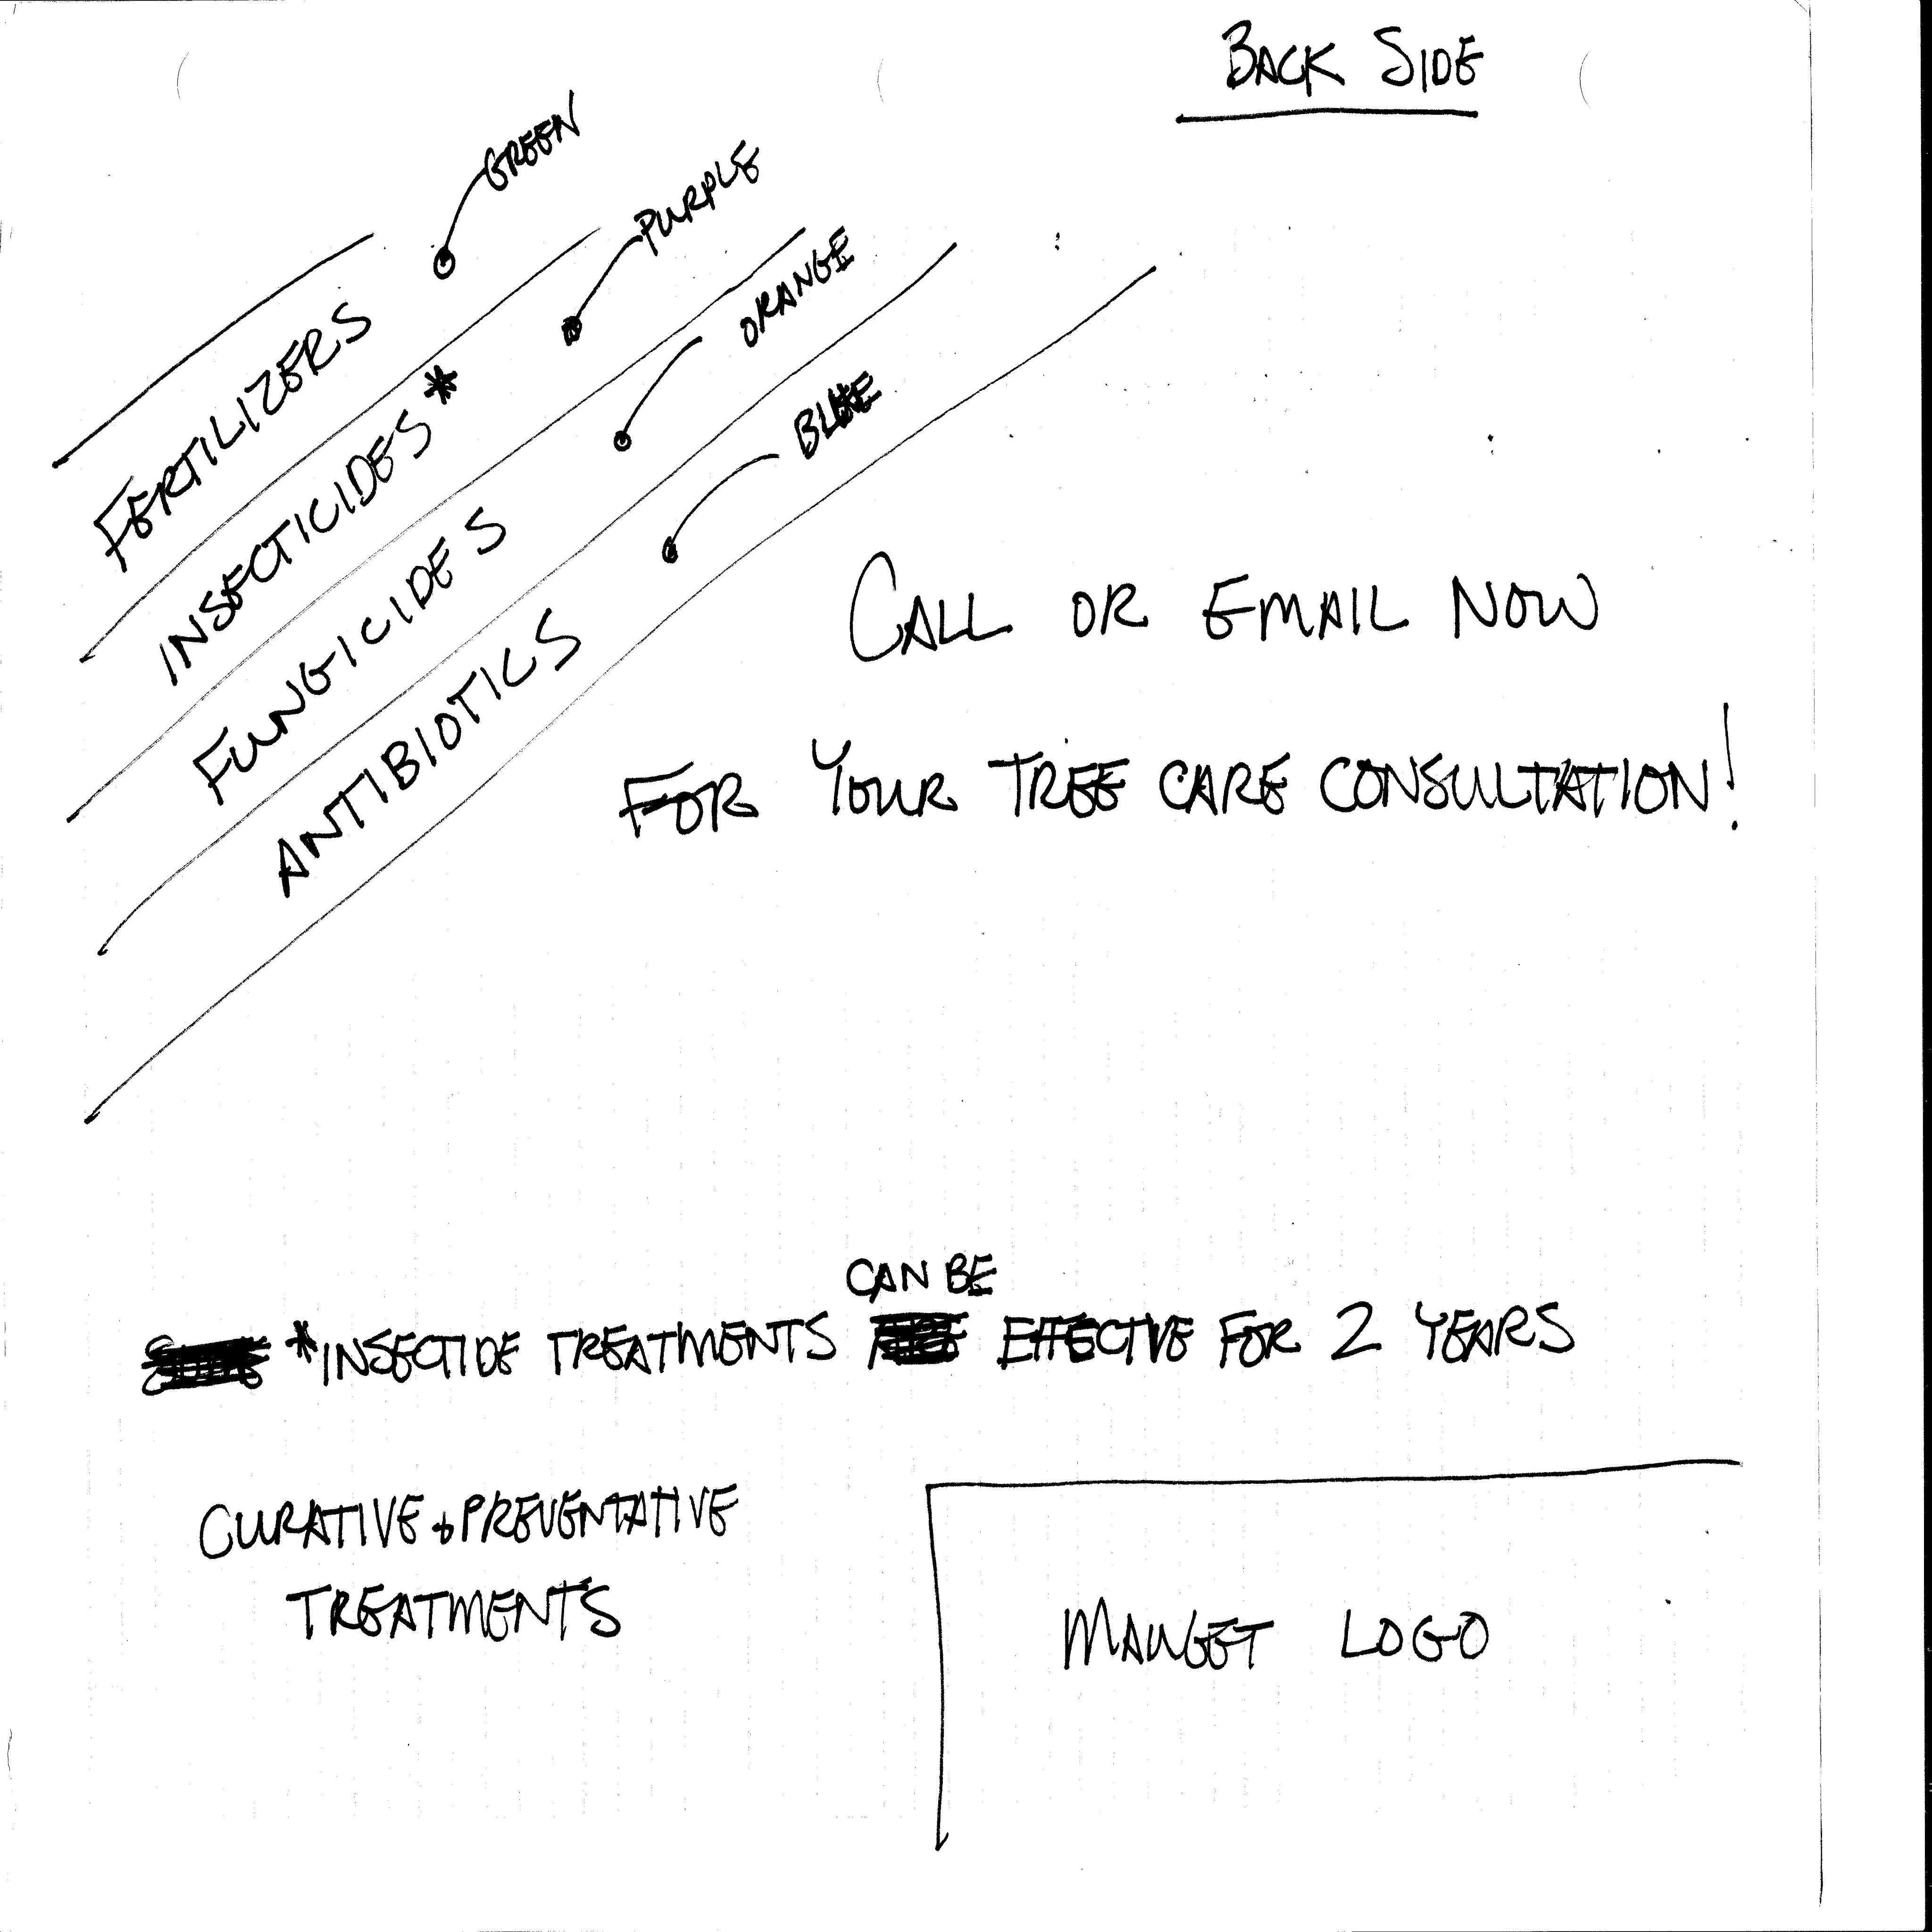 BACK SIDE
GREEN
PURPLE
ORANGE
BLUE
FERTILIZERS
INSECTICIDES *
FUNGICIDES
ANTIBIOTICS
CALL OR EMAIL NOW
FOR YOUR TREE CARE CONSULTATION!
CAN BE
*INSECTIDE TREATMENTS EFFECTIVE FOR 2 YEARS
CURATIVE + PREVENTATIVE
TREATMENTS
MAUGET LOGO